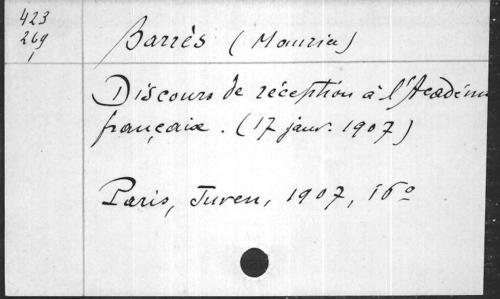 423
269
1
Barrès (Maurice)
Discours de réception à l'Académ
française. (17 janv. 1907)
Paris, Juven, 1907, 16º